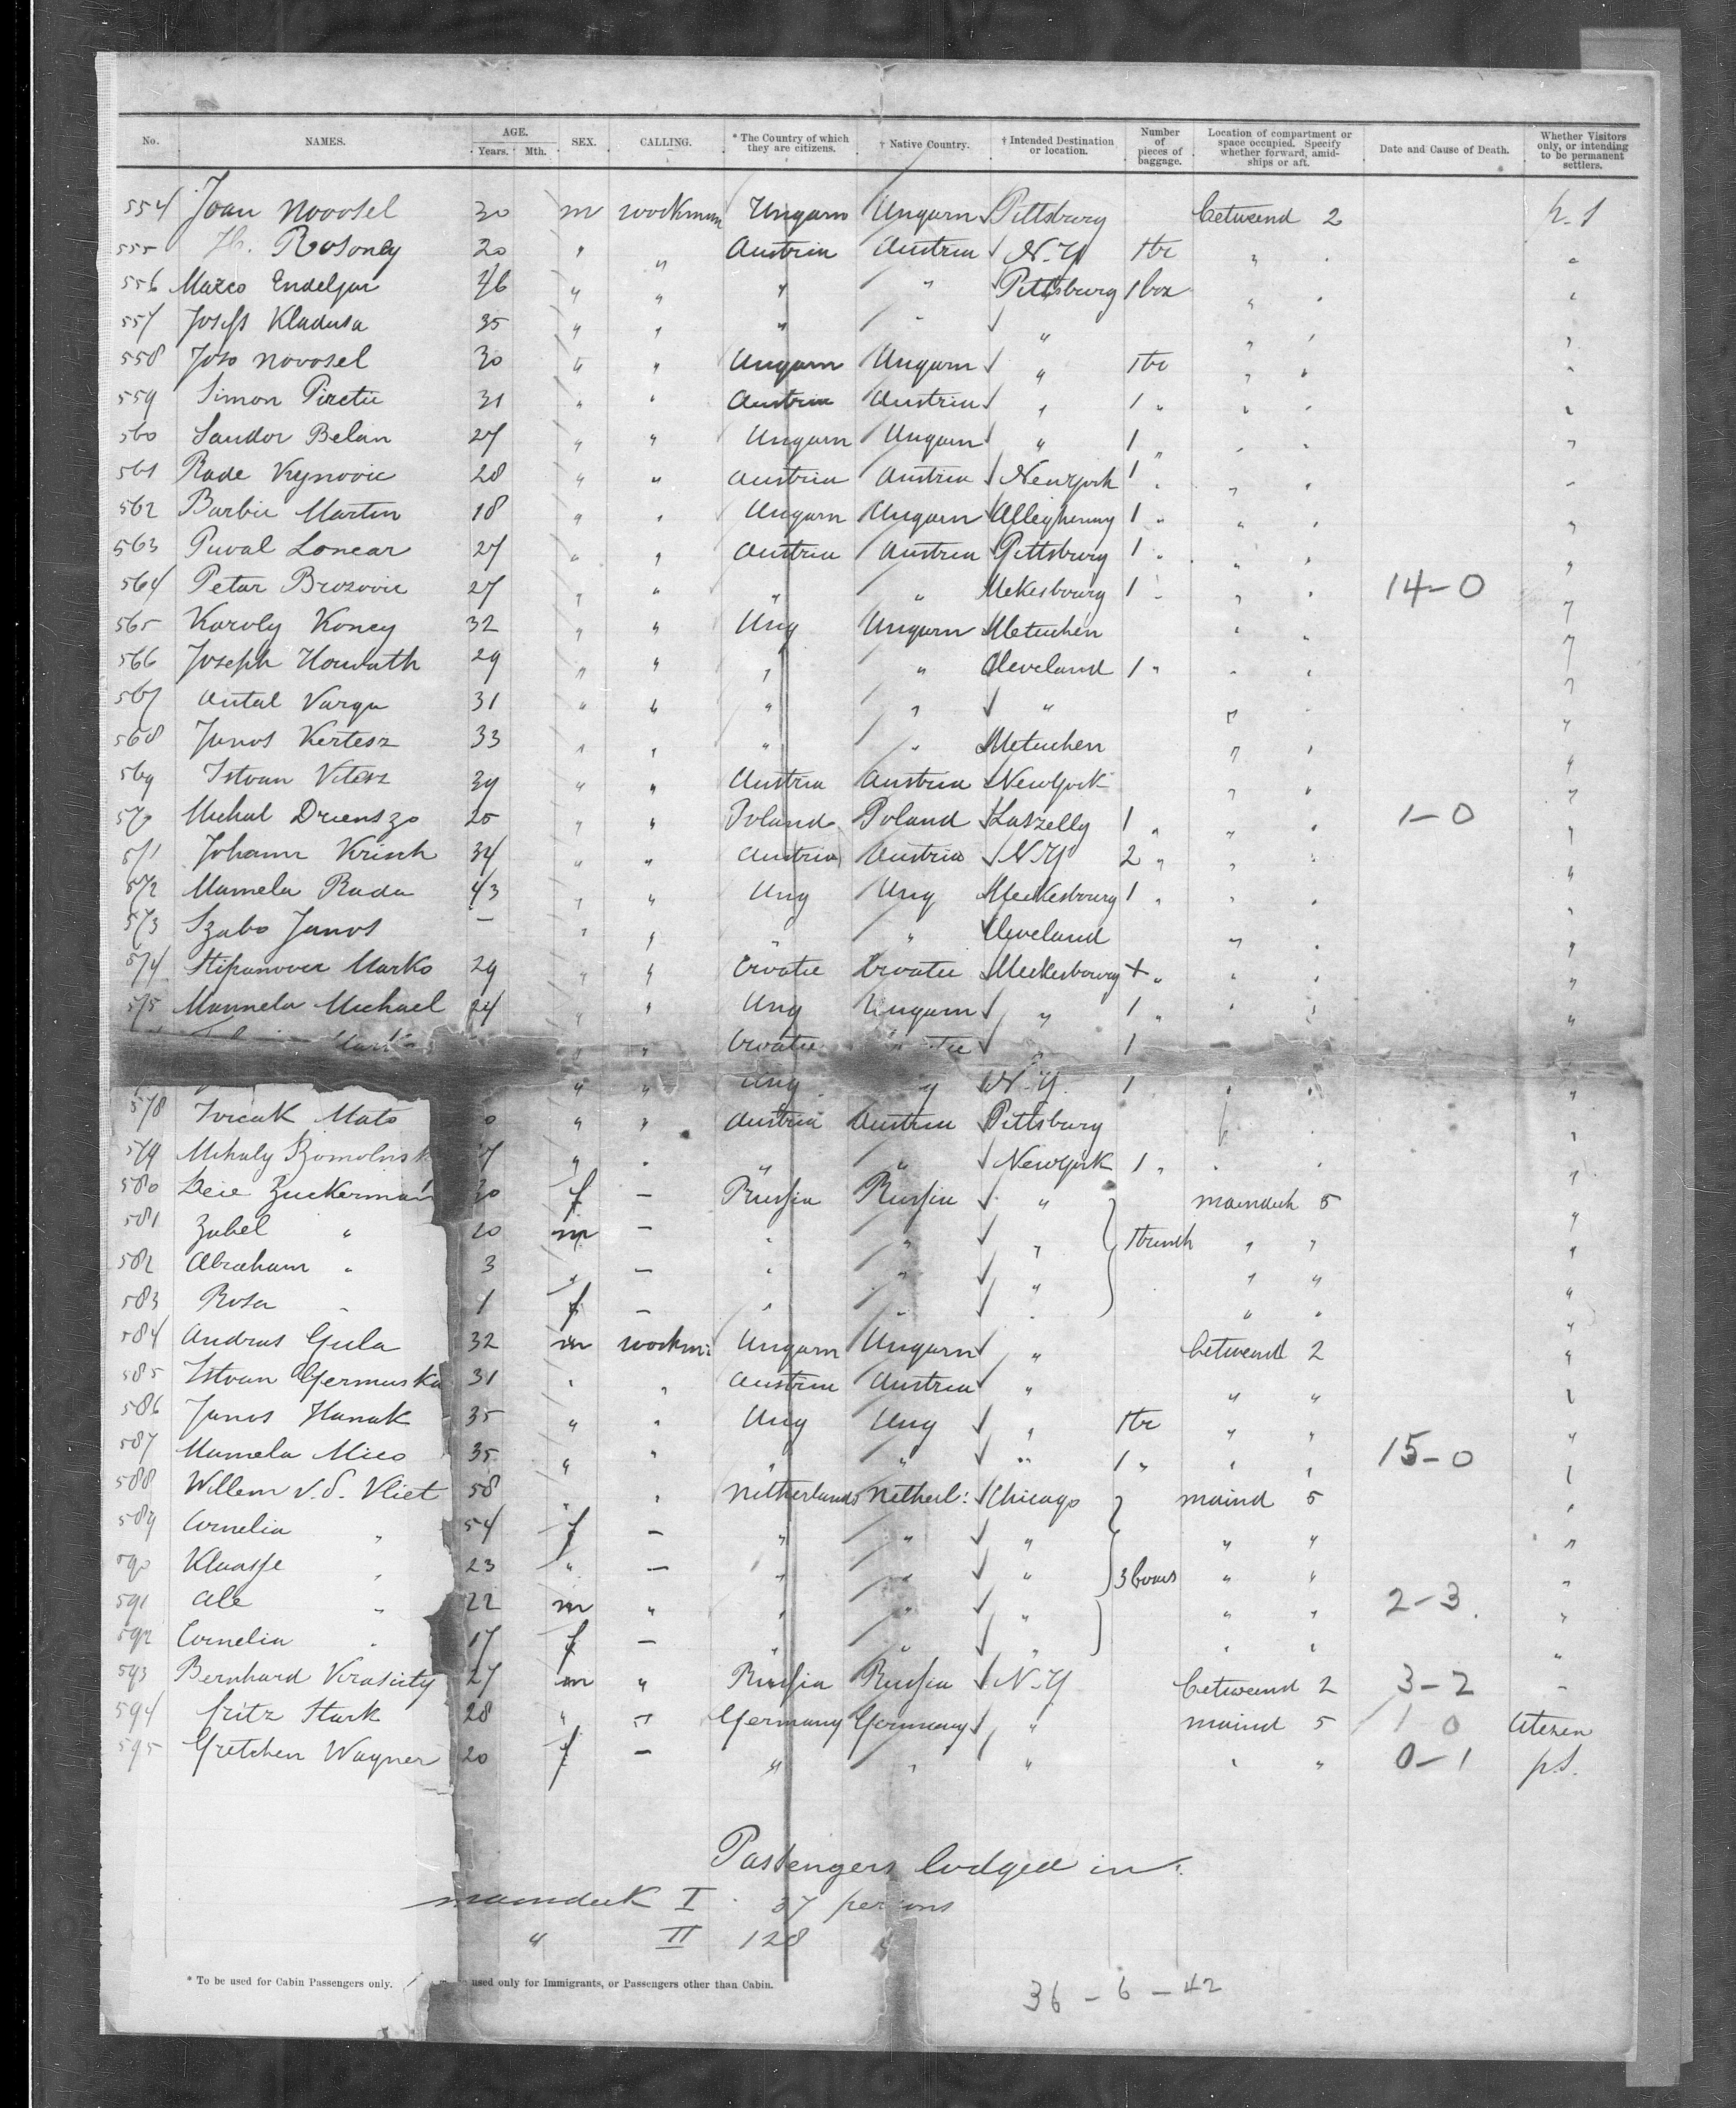 No. NAMES. AGE. Years. Mth. SEX. CALLING. * The Country of which they are citizens. † Native Country. † Intended Destination or location. Number of pieces of baggage. Location of compartment or space occupied. Specify whether forward, amidships or aft. Date and Cause of Death. Whether Visitors only, or intending to be permanent settlers.
554 Joan Novosel 30 m workman Ungarn Ungarn Pittsburg betweend 2
555 20 " " Austria Austria N.Y 1 tr " "
556 Marco 46 " " " " Pittsburg 1 box " "
557 Josef Kladusa 35 " " " " " " "
558 Joso Novosel 30 " " Ungarn Ungarn " 1 tr " "
559 Simon 31 " " Austria Austria " 1 " " "
560 Sandor Belan 27 " " Ungarn Ungarn " 1 " " "
561 Rade 28 " " Austria Austria Newyork 1 " " "
562 Barbic Martin 18 " " Ungarn Ungarn Allegheny 1 " " "
563 Loncar 27 " " Austria Austria Pittsburg 1 " " "
564 Petar Brozovic 27 " " " " 1 " " " 14-0
565 Karoly Koncy 32 " " Ung Ungarn Metuchen " "
566 Joseph Horvath 29 " " " " Cleveland 1 " " "
567 Antal Varga 31 " " " " " " "
568 Janos Kertesz 33 " " " " Metuchen " "
569 Istvan Vitesz 39 " " Austria Austria Newyork " "
570 Michal 25 " " Poland Poland 1 " " " 1-0
571 Johann 34 " " Austria Austria N.Y 2 " " "
572 Mamela Rada 43 " " Ung Ung Meckesbourg 1 " " "
573 Szabo Janos - " " " " Cleveland " "
574 Marko 29 " " Croatie Croatie Meckesbourg + " " "
575 Mamela Michael 24 " " Ung Ungarn " 1 " " "
Croatie " 1
" " Ung N.Y. 1 " "
578 Mato " " Austria Austria Pittsburg
579 Mihaly " " " " Newyork 1 " " "
580 Zuckerman 30 f - Russia Russia " maindeck 5
581 " 20 m - " " " 1 trunk " "
582 Abraham " 3 " - " " " " "
583 Rosa " 1 f - " " " " "
584 Andras Gula 32 m workm: Ungarn Ungarn " betweend 2
585 Istvan Germuska 31 " " Austria Austria " " "
586 Janos Hanak 35 " " Ung Ung " 1 tr " "
587 Mamela Mico 35 " " " " " 1 " " " 15-0
588 Willem v.d. Vliet 58 " " Netherlands Netherl: Chicago maind 5
589 Cornelia " 54 f - " " " " "
590 Klaasje " 23 " - " " " 3 boxes " "
591 Ale " 22 m " " " " " " 2-3
592 Cornelia " 17 f - " " " " "
593 Bernhard 27 m " Russia Russia N.Y betweend 2 3-2
594 Fritz Stark 28 " " Germany Germany " maind 5 1 0 Citizen
595 Gretchen Wagner 20 f - " " " " " 0-1 p.S.
Passengers lodged in:
maindeck I 37 persons
" II 128 "
* To be used for Cabin Passengers only. used only for Immigrants, or Passengers other than Cabin.
36 - 6 - 42